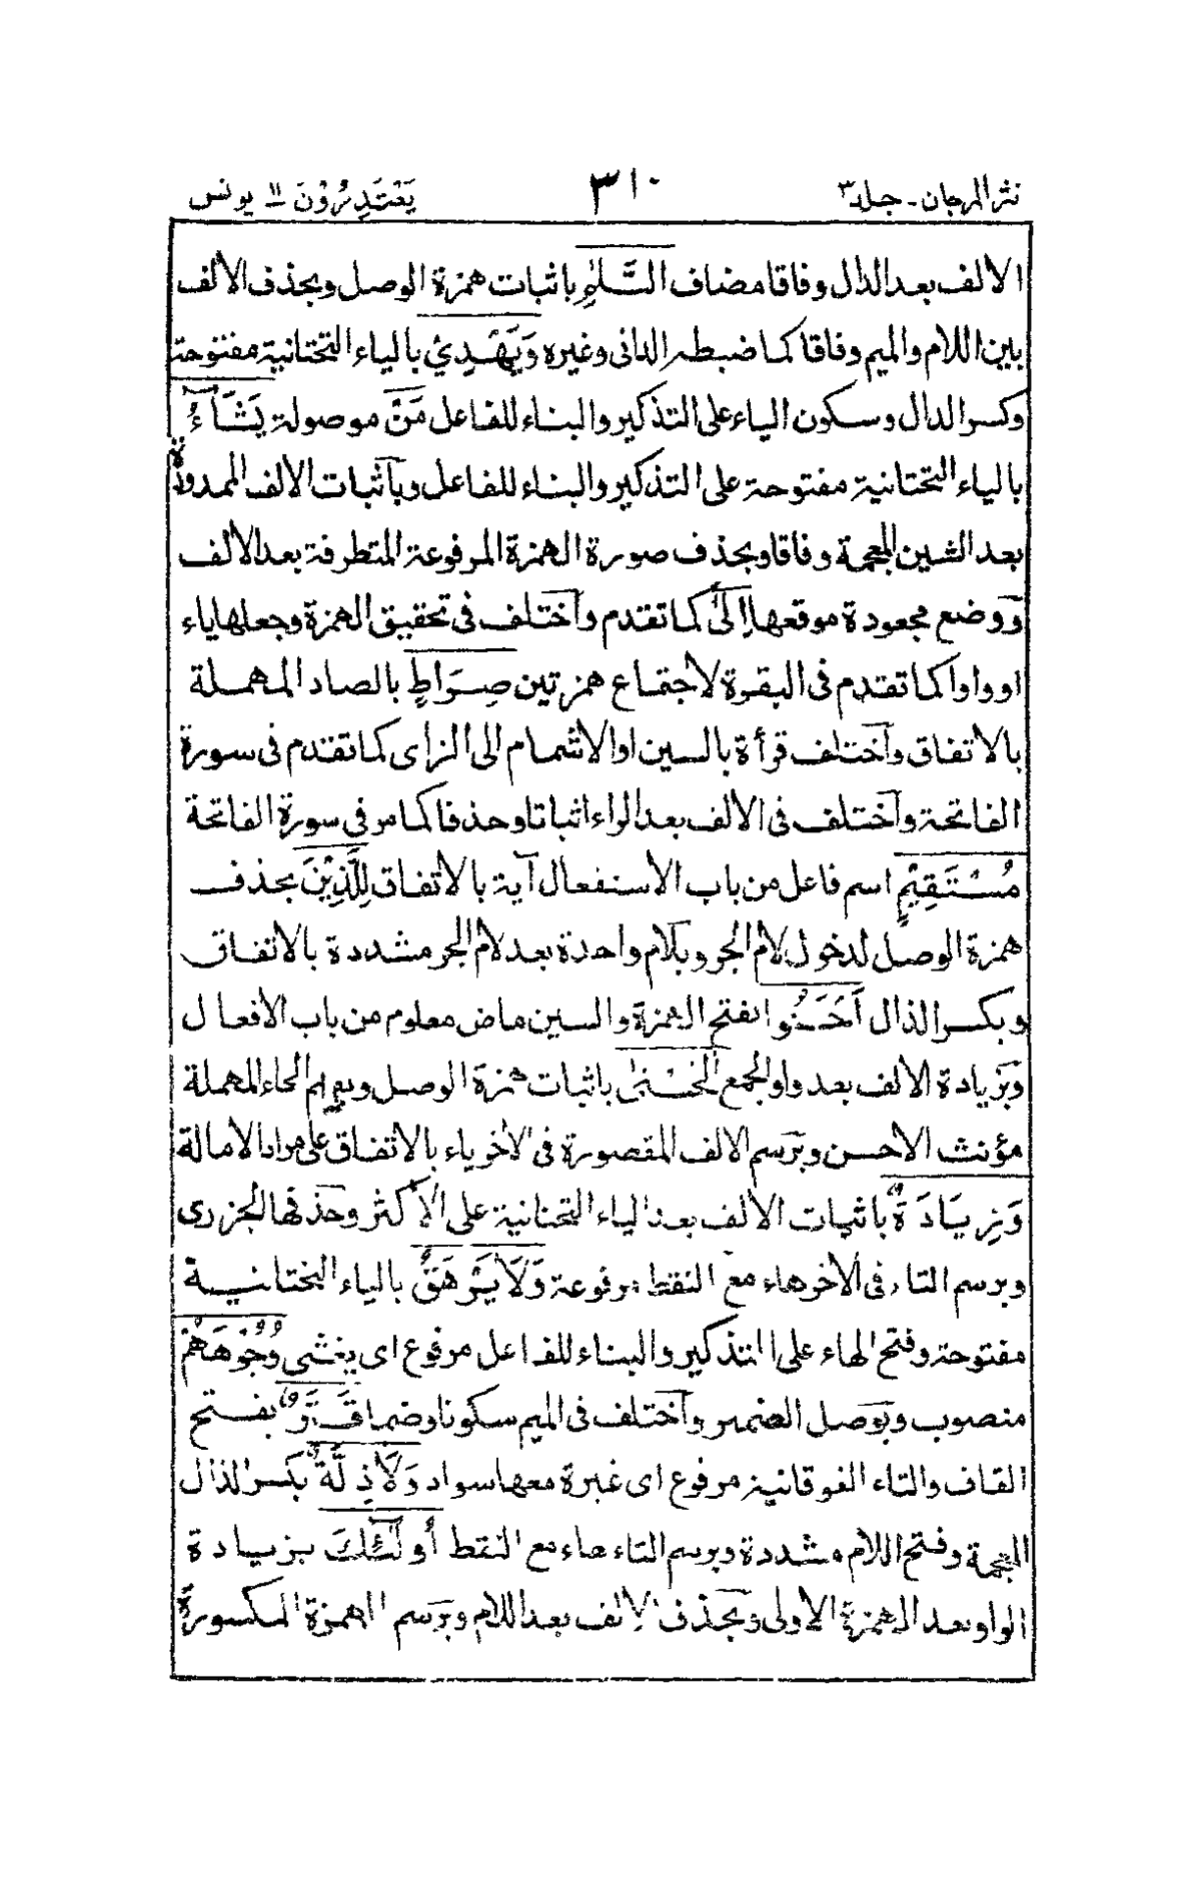 نثر المرجان - جلد ٣
٣١٠
يَعْتَذِرُوْنَ ١١ يونس
الالف بعد الدال وفاقا مضاف السَّلٰمِ باثبات همزة الوصل وبحذف الالف
بين اللام والميم وفاقا كما ضبطه الدانى وغيره وَيَهْدِيْ بالياء التحتانية مفتوحة
وكسر الدال وسكون الياء على التذكير والبناء للفاعل مَنْ موصولة يَشَآءُ
بالياء التحتانية مفتوحة على التذكير والبناء للفاعل وباثبات الالف الممدودة
بعد الشين المعجمة وفاقا وبحذف صورة الهمزة المرفوعة المتطرفة بعد الالف
ووضع مجعودة موقعها اِلٰى كما تقدم واختلف فى تحقيق الهمزة وجعلها ياء
او واوا كما تقدم فى البقرة لاجتماع همزتين صِرَاطٍ بالصاد المهملة
بالاتفاق واختلف قرأة بالسين او الاشمام الى الزاى كما تقدم فى سورة
الفاتحة واختلف فى الالف بعد الراء اثباتا وحذفا كما مر فى سورة الفاتحة
مُسْتَقِيْمٍ اسم فاعل من باب الاستفعال آية بالاتفاق لِلَّذِيْنَ بحذف
همزة الوصل لدخول لام الجر وبلام واحدة بعد لام الجر مشددة بالاتفاق
وبكسر الذال اَحْسَنُوا بفتح الهمزة والسين ماض معلوم من باب الافعال
وبزيادة الالف بعد واو الجمع الحُسْنٰى باثبات همزة الوصل وبضم الحاء المهملة
مؤنث الاحسن وبرسم الالف المقصورة فى الاخر ياء بالاتفاق على مراد الامالة
وَزِيَادَةٌ باثبات الالف بعد الياء التحتانية على الاكثر وحذفها الجزرى
وبرسم التاء فى الاخر هاء مع النقط مرفوعة وَلَا يَرْهَقُ بالياء التحتانية
مفتوحة وفتح الهاء على التذكير والبناء للفاعل مرفوع اى يغشى وُجُوْهَهُمْ
منصوب وبوصل الضمير واختلف فى الميم سكونا وضما قَتَرٌ بفتح
القاف والتاء الفوقانية مرفوع اى غبرة معها سواد وَلَا ذِلَّةٌ بكسر الذال
المعجمة وفتح اللام مشددة وبرسم التاء هاء مع النقط أُولٰٓئِكَ بزيادة
الواو بعد الهمزة الاولى وبحذف الالف بعد اللام وبرسم الهمزة المكسورة